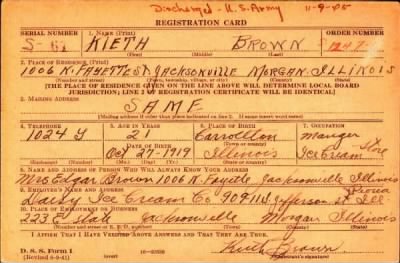 Discharged - U.S. Army 11-9-45
REGISTRATION CARD
SERIAL NUMBER 1. NAME (Print) ORDER NUMBER
S- 61 KIETH BROWN 1247
(First) (Middle) (Last)
2. PLACE OF RESIDENCE (Print)
1006 N. FAYETTE ST JACKSONVILLE MORGAN ILLINOIS
(Number and street) (Town, township, village, or city) (County) (State)
[THE PLACE OF RESIDENCE GIVEN ON THE LINE ABOVE WILL DETERMINE LOCAL BOARD
JURISDICTION; LINE 2 OF REGISTRATION CERTIFICATE WILL BE IDENTICAL]
3. MAILING ADDRESS
SAME
[Mailing address if other than place indicated on line 2. If same insert word same]
4. TELEPHONE 5. AGE IN YEARS 6. PLACE OF BIRTH 7. OCCUPATION
1024 Y 21 Carrollton Manger
DATE OF BIRTH Store
Oct 27 1919 Illinois Ice Cream
(Exchange) (Number) (Mo.) (Day) (Yr.) (State or country)
8. NAME AND ADDRESS OF PERSON WHO WILL ALWAYS KNOW YOUR ADDRESS
Mrs Edgar Brown 1006 N. Fayette Jacksonville Illinois
9. EMPLOYER'S NAME AND ADDRESS Peoria
Daisy Ice Cream Co. Jefferson St Ill
10. PLACE OF EMPLOYMENT OR BUSINESS
223 E State Jacksonville Morgan Illinois
(Number and street or R. F. D. number) (Town) (County) (State)
I AFFIRM THAT I HAVE VERIFIED ABOVE ANSWERS AND THAT THEY ARE TRUE.
D. S. S. Form 1 Kieth Brown
(Revised 6-9-41) (Registrant's signature)